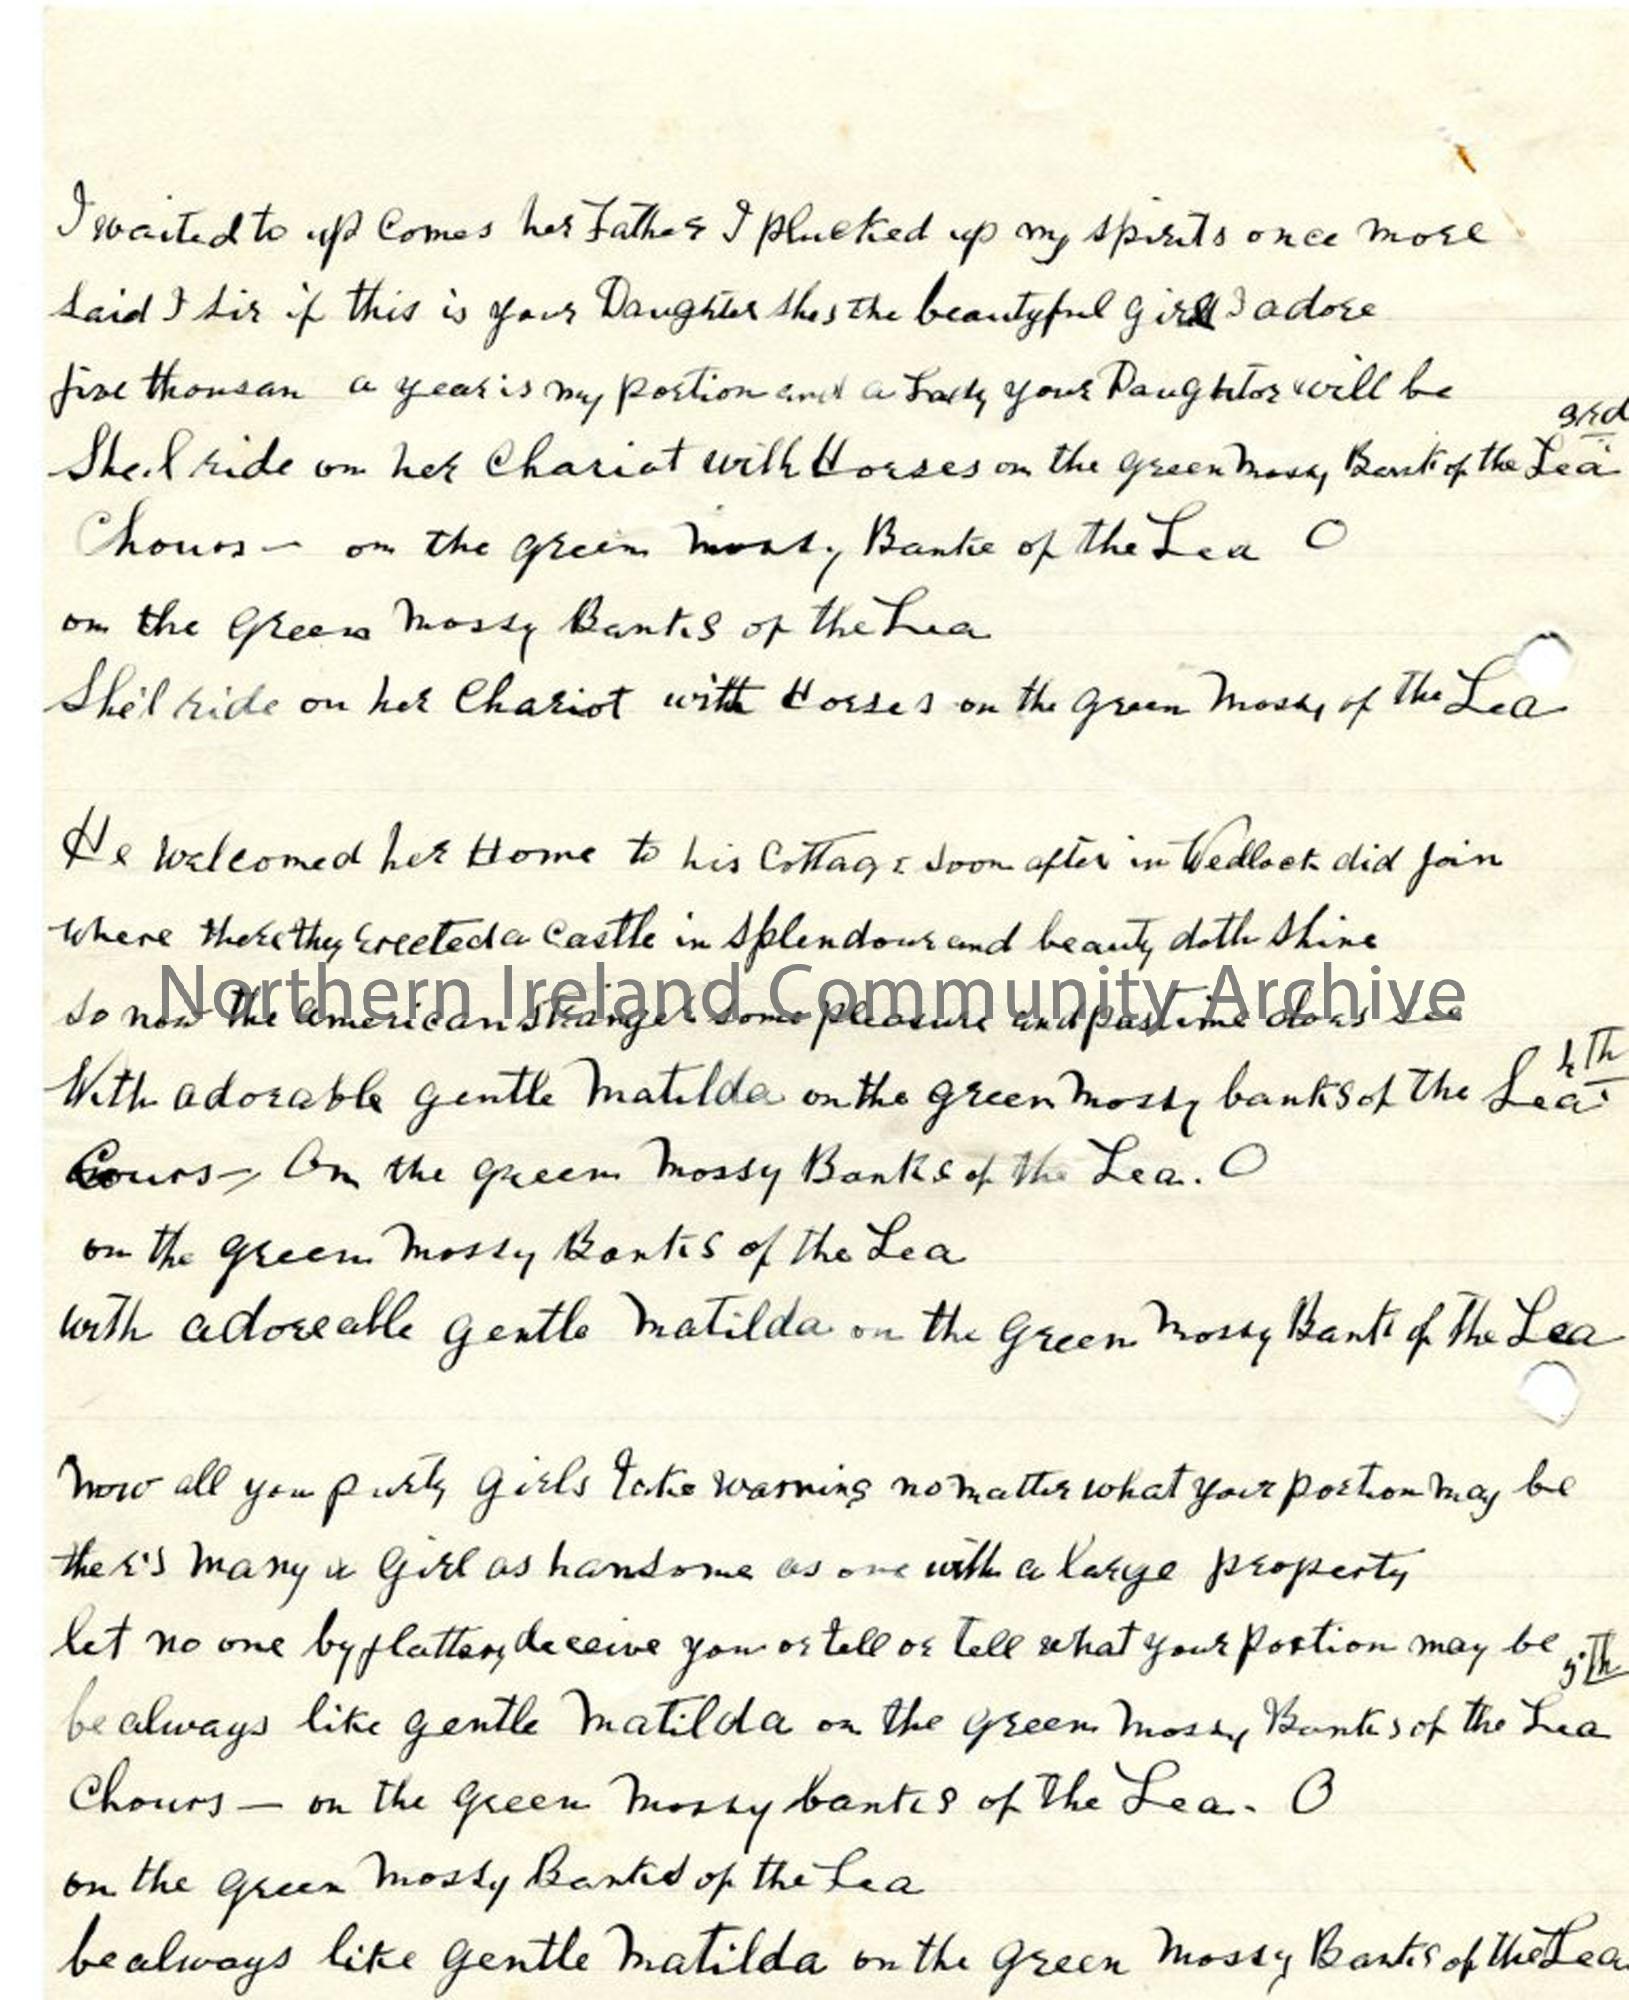 I waited to up Comes her Father I plucked up my spirits once more
Said I Sir if this is your Daughter shes the beautyful girl I adore
five thousan a year is my portion and a Lady your Daughter will be
3rd
She,l ride on her Chariot with Horses on the green Mossy Bank of the Lea
Chours — on the green mossy Banke of the Lea O
on the Green Mossy Banks of the Lea
She'l ride on her Chariot with Horses on the green Mossy of the Lea
He Welcomed her Home to his Cottage soon after in Wedlock did join
where there they Erected a Castle in Splendour and beauty doth Shine
Northern Ireland Community Archive
so now the american stranger some pleasure and pastime does see
4th
With adorable gentle Matilda on the green Mossy banks of the Lea
Cours — On the green Mossy Banks of the Lea. O
on the green Mossy Banks of the Lea
with adoreable gentle Matilda on the Green Mossy Banks of the Lea
Now all you purty girls take warning no matter what your portion may be
ther's Many a Girl as hansome as one with a large property
let no one by flattery deceive you or tell or tell what your portion may be
5th
be always like gentle Matilda on the green Mossy Banks of the Lea
Chours — on the green Mossy banks of the Lea. O
on the green Mossy Banks of the Lea
be always like gentle Matilda on the green Mossy Banks of the Lea